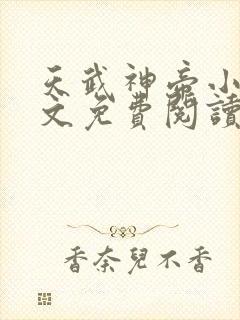 天武神帝小
文免費閱讀
香奈兒不香